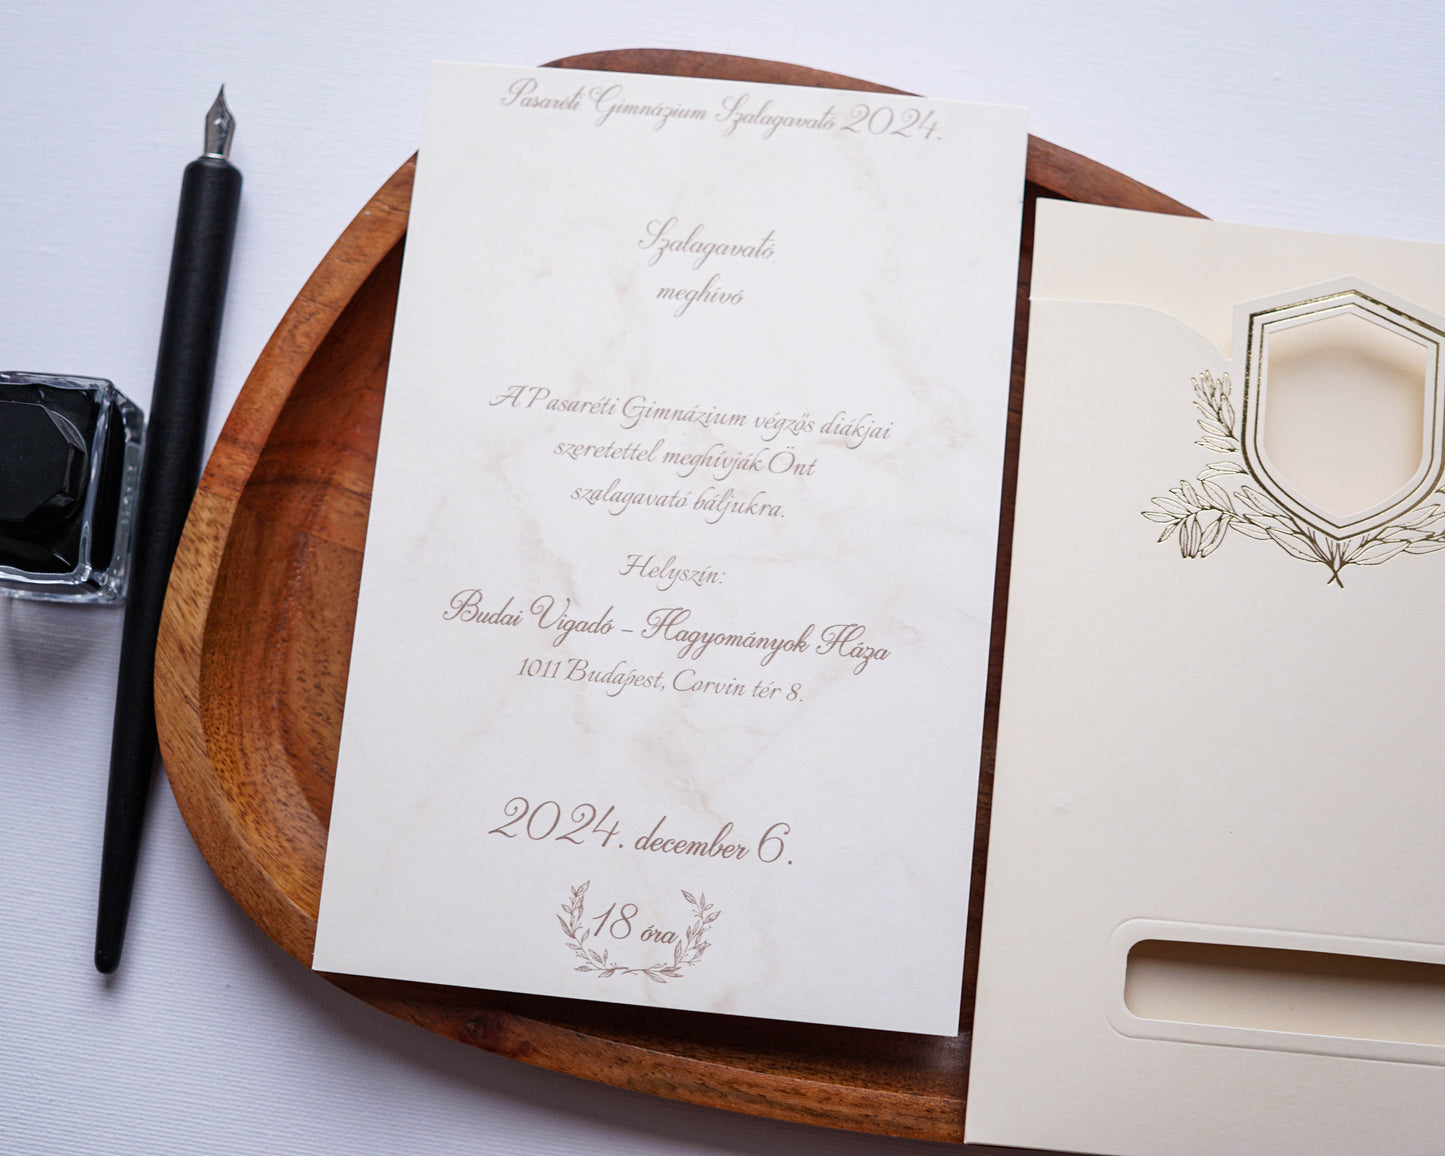 Pasaréti Gimnázium Szalagavató 2024.
Szalagavató
meghívó
A Pasaréti Gimnázium végzős diákjai
szeretettel meghívják Önt
szalagavató báljukra.
Helyszín:
Budai Vigadó – Hagyományok Háza
1011 Budapest, Corvin tér 8.
2024. december 6.
18 óra